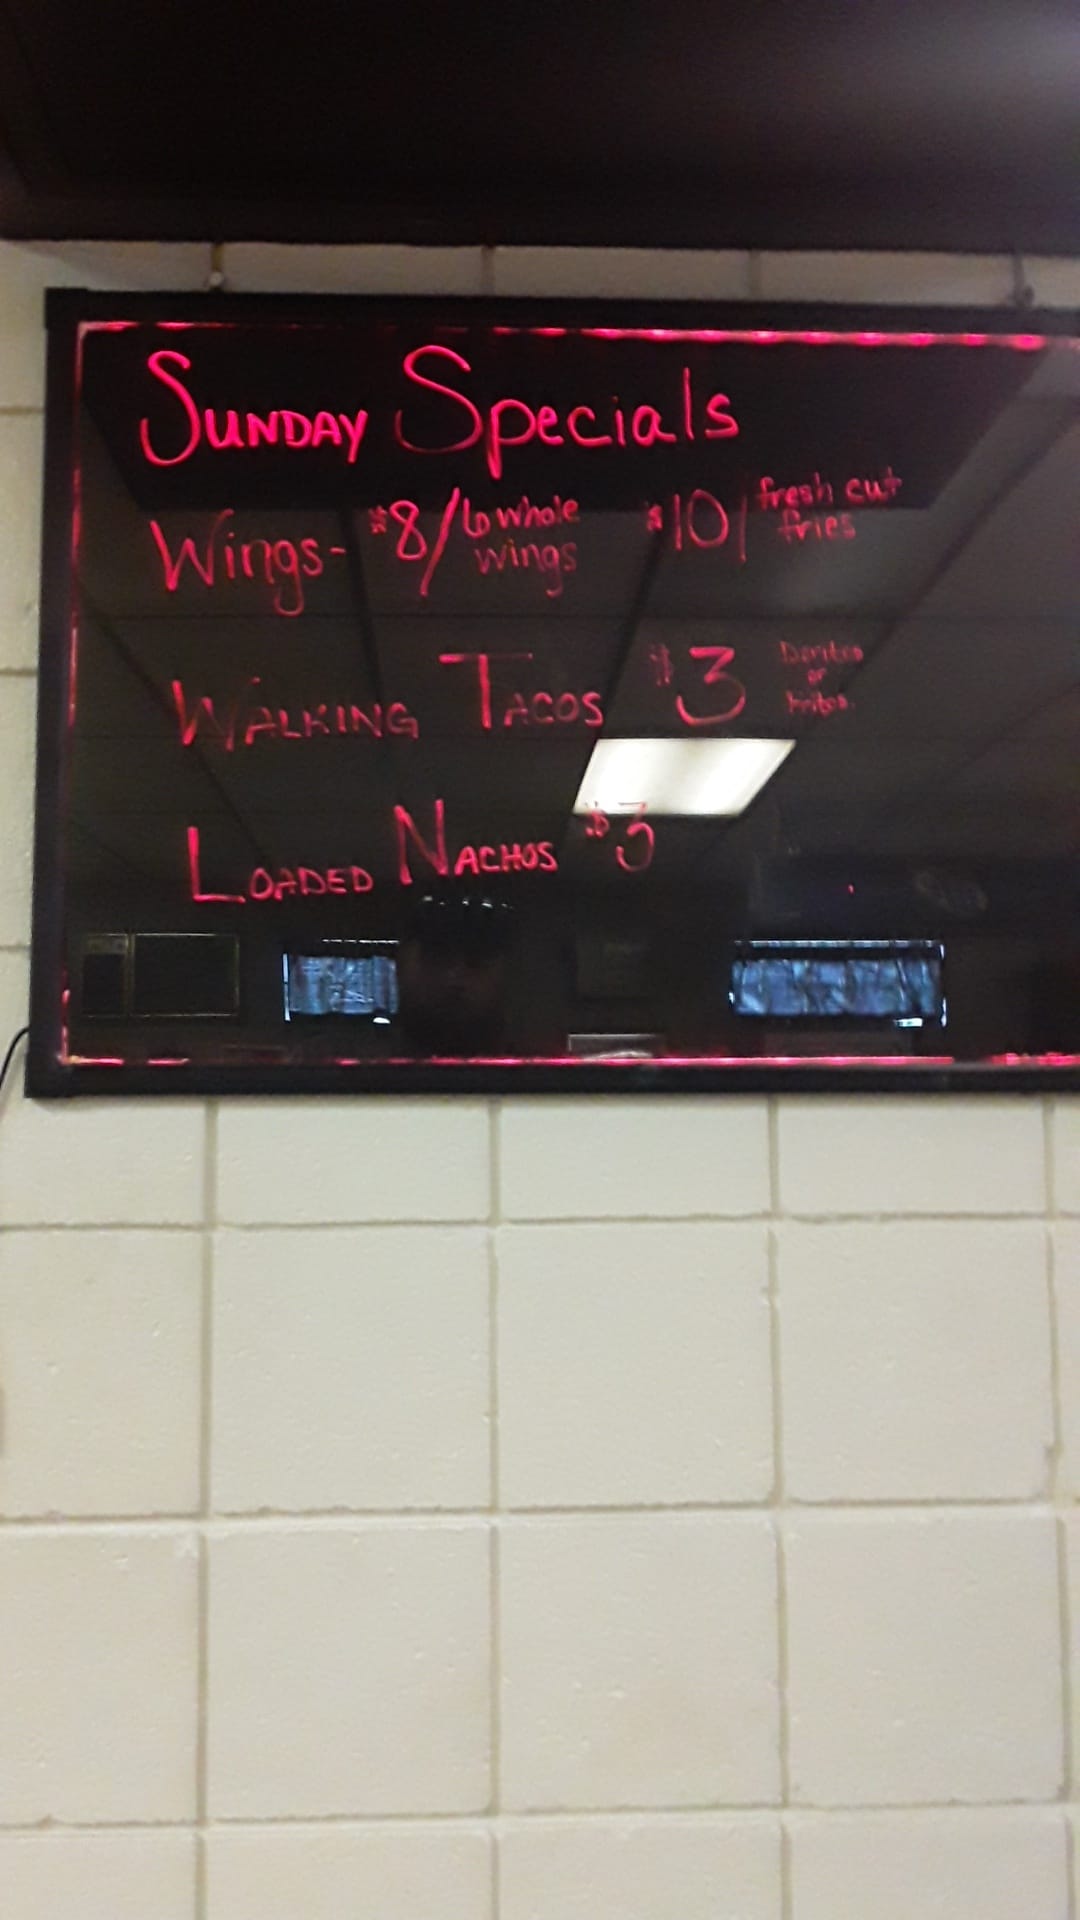 SUNDAY Specials
Wings- $8/6 whole wings $10/ fresh cut fries
WALKING TACOS $3 Doritos or Fritos.
LOADED NACHOS $3